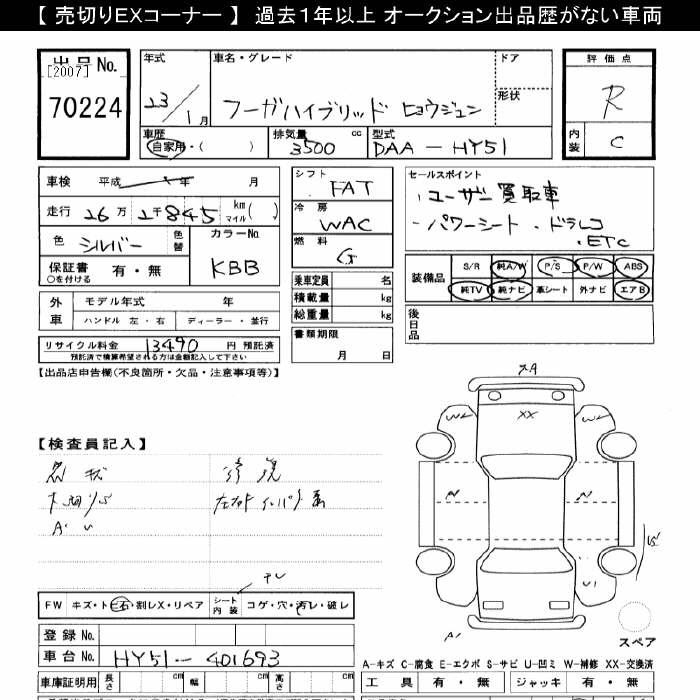 【 売切りEXコーナー 】 過去1年以上 オークション出品歴がない車両
出品No.
[2007]
70224
年式
23/1月
車名・グレード
フーガハイブリッド ヒョウジュン
ドア
形状
評価点
R
内装
C
車歴
自家用・( )
排気量
3500 cc
型式
DAA-HY51
車検 平成 年 月
走行 26万2千845 km マイル( )
色 シルバー 色替
カラーNo.
KBB
保証書 有・無
○を付ける
シフト
FAT
冷房
WAC
燃料
G
乗車定員 名
積載量 kg
総重量 kg
セールスポイント
・ユーザー買取車
・パワーシート ・ドラレコ
・ETC
装備品
S/R 純A/W P/S P/W ABS
純TV 純ナビ 革シート 外ナビ エアB
外車
モデル年式 年
ハンドル 左・右 ディーラー・並行
リサイクル料金 13490 円 預託済
預託済で積算希望される方は金額記入して下さい
書類期限
月 日
後日品
【出品店申告欄(不良箇所・欠品・注意事項等)】
【検査員記入】
XA
W2 XX W2
A1 A1
U1
A1
FW キズ・ト・石・割レX・リペア
シート内装 コゲ・穴・汚レ・破レ
登録No.
車台No. HY51-401693
スペア
A-キズ C-腐食 E-エクボ S-サビ U-凹ミ W-補修 XX-交換済
車庫証明用 長さ cm 幅 cm 高さ cm
工具 有・無 ジャッキ 有・無